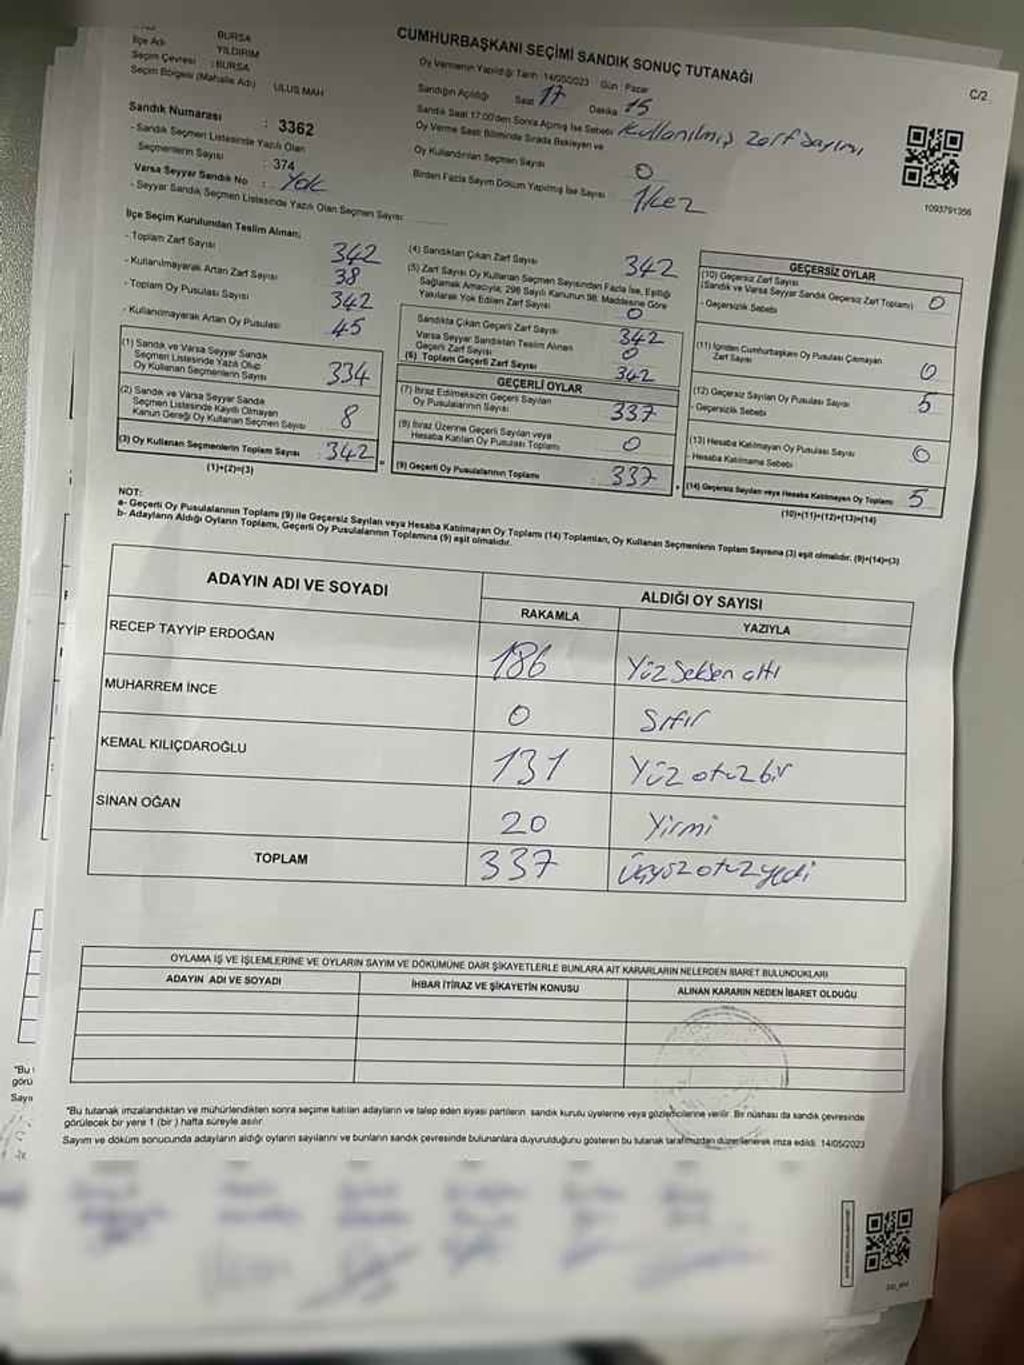 BURSA
İlçe Adı YILDIRIM
Seçim Çevresi : BURSA
Seçim Bölgesi (Mahalle Adı) ULUS MAH
Sandık Numarası : 3362
- Sandık Seçmen Listesinde Yazılı Olan
Seçmenlerin Sayısı : 374
Varsa Seyyar Sandık No : Yok
- Seyyar Sandık Seçmen Listesinde Yazılı Olan Seçmen Sayısı:
CUMHURBAŞKANI SEÇİMİ SANDIK SONUÇ TUTANAĞI
C/2
Oy Vermenin Yapıldığı Tarih : 14/05/2023 Gün : Pazar
Sandığın Açıldığı Saat 17 Dakika 15
Sandık Saat 17:00'den Sonra Açılmış İse Sebebi Kullanılmış zarf sayımı
Oy Verme Saati Bitiminde Sırada Bekleyen ve
Oy Kullandırılan Seçmen Sayısı 0
Birden Fazla Sayım Döküm Yapılmış İse Sayısı 1 kez
1093791356
İlçe Seçim Kurulundan Teslim Alınan;
- Toplam Zarf Sayısı 342
- Kullanılmayarak Artan Zarf Sayısı 38
- Toplam Oy Pusulası Sayısı 342
- Kullanılmayarak Artan Oy Pusulası 45
(1) Sandık ve Varsa Seyyar Sandık
Seçmen Listesinde Yazılı Olup
Oy Kullanan Seçmenlerin Sayısı 334
(2) Sandık ve Varsa Seyyar Sandık
Seçmen Listesinde Kayıtlı Olmayan
Kanun Gereği Oy Kullanan Seçmen Sayısı 8
(3) Oy Kullanan Seçmenlerin Toplam Sayısı 342
(1)+(2)=(3)
(4) Sandıktan Çıkan Zarf Sayısı 342
(5) Zarf Sayısı Oy Kullanan Seçmen Sayısından Fazla İse, Eşitliği
Sağlamak Amacıyla; 298 Sayılı Kanunun 98. Maddesine Göre
Yakılarak Yok Edilen Zarf Sayısı 0
Sandıkta Çıkan Geçerli Zarf Sayısı 342
Varsa Seyyar Sandıktan Teslim Alınan
Geçerli Zarf Sayısı 0
(6) Toplam Geçerli Zarf Sayısı 342
GEÇERLİ OYLAR
(7) İtiraz Edilmeksizin Geçerli Sayılan
Oy Pusulalarının Sayısı 337
(8) İtiraz Üzerine Geçerli Sayılan veya
Hesaba Katılan Oy Pusulası Toplamı 0
(9) Geçerli Oy Pusulalarının Toplamı 337
GEÇERSİZ OYLAR
(10) Geçersiz Zarf Sayısı
(Sandık ve Varsa Seyyar Sandık Geçersiz Zarf Toplamı) 0
- Geçersizlik Sebebi
(11) İçinden Cumhurbaşkanı Oy Pusulası Çıkmayan
Zarf Sayısı 0
(12) Geçersiz Sayılan Oy Pusulası Sayısı 5
- Geçersizlik Sebebi
(13) Hesaba Katılmayan Oy Pusulası Sayısı 0
- Hesaba Katılmama Sebebi
(14) Geçersiz Sayılan veya Hesaba Katılmayan Oy Toplamı 5
(10)+(11)+(12)+(13)=(14)
NOT:
a- Geçerli Oy Pusulalarının Toplamı (9) ile Geçersiz Sayılan veya Hesaba Katılmayan Oy Toplamı (14) Toplamları, Oy Kullanan Seçmenlerin Toplam Sayısına (3) eşit olmalıdır. (9)+(14)=(3)
b- Adayların Aldığı Oyların Toplamı, Geçerli Oy Pusulalarının Toplamına (9) eşit olmalıdır.
ADAYIN ADI VE SOYADI
ALDIĞI OY SAYISI
RAKAMLA YAZIYLA
RECEP TAYYİP ERDOĞAN 186 Yüz Seksen altı
MUHARREM İNCE 0 Sıfır
KEMAL KILIÇDAROĞLU 131 Yüz otuz bir
SİNAN OĞAN 20 Yirmi
TOPLAM 337 Üçyüz otuz yedi
OYLAMA İŞ VE İŞLEMLERİNE VE OYLARIN SAYIM VE DÖKÜMÜNE DAİR ŞİKAYETLERLE BUNLARA AİT KARARLARIN NELERDEN İBARET BULUNDUKLARI
ADAYIN ADI VE SOYADI İHBAR İTİRAZ VE ŞİKAYETİN KONUSU ALINAN KARARIN NEDEN İBARET OLDUĞU
"Bu tutanak imzalandıktan ve mühürlendikten sonra seçime katılan adayların ve talep eden siyasi partilerin sandık kurulu üyelerine veya gözlemcilerine verilir. Bir nüshası da sandık çevresinde
görülecek bir yere 1 (bir) hafta süreyle asılır.
Sayım ve döküm sonucunda adayların aldığı oyların sayılarını ve bunların sandık çevresinde bulunanlara duyurulduğunu gösteren bu tutanak tarafımızdan düzenlenerek imza edildi. 14/05/2023
"Bu
görü
Sayı